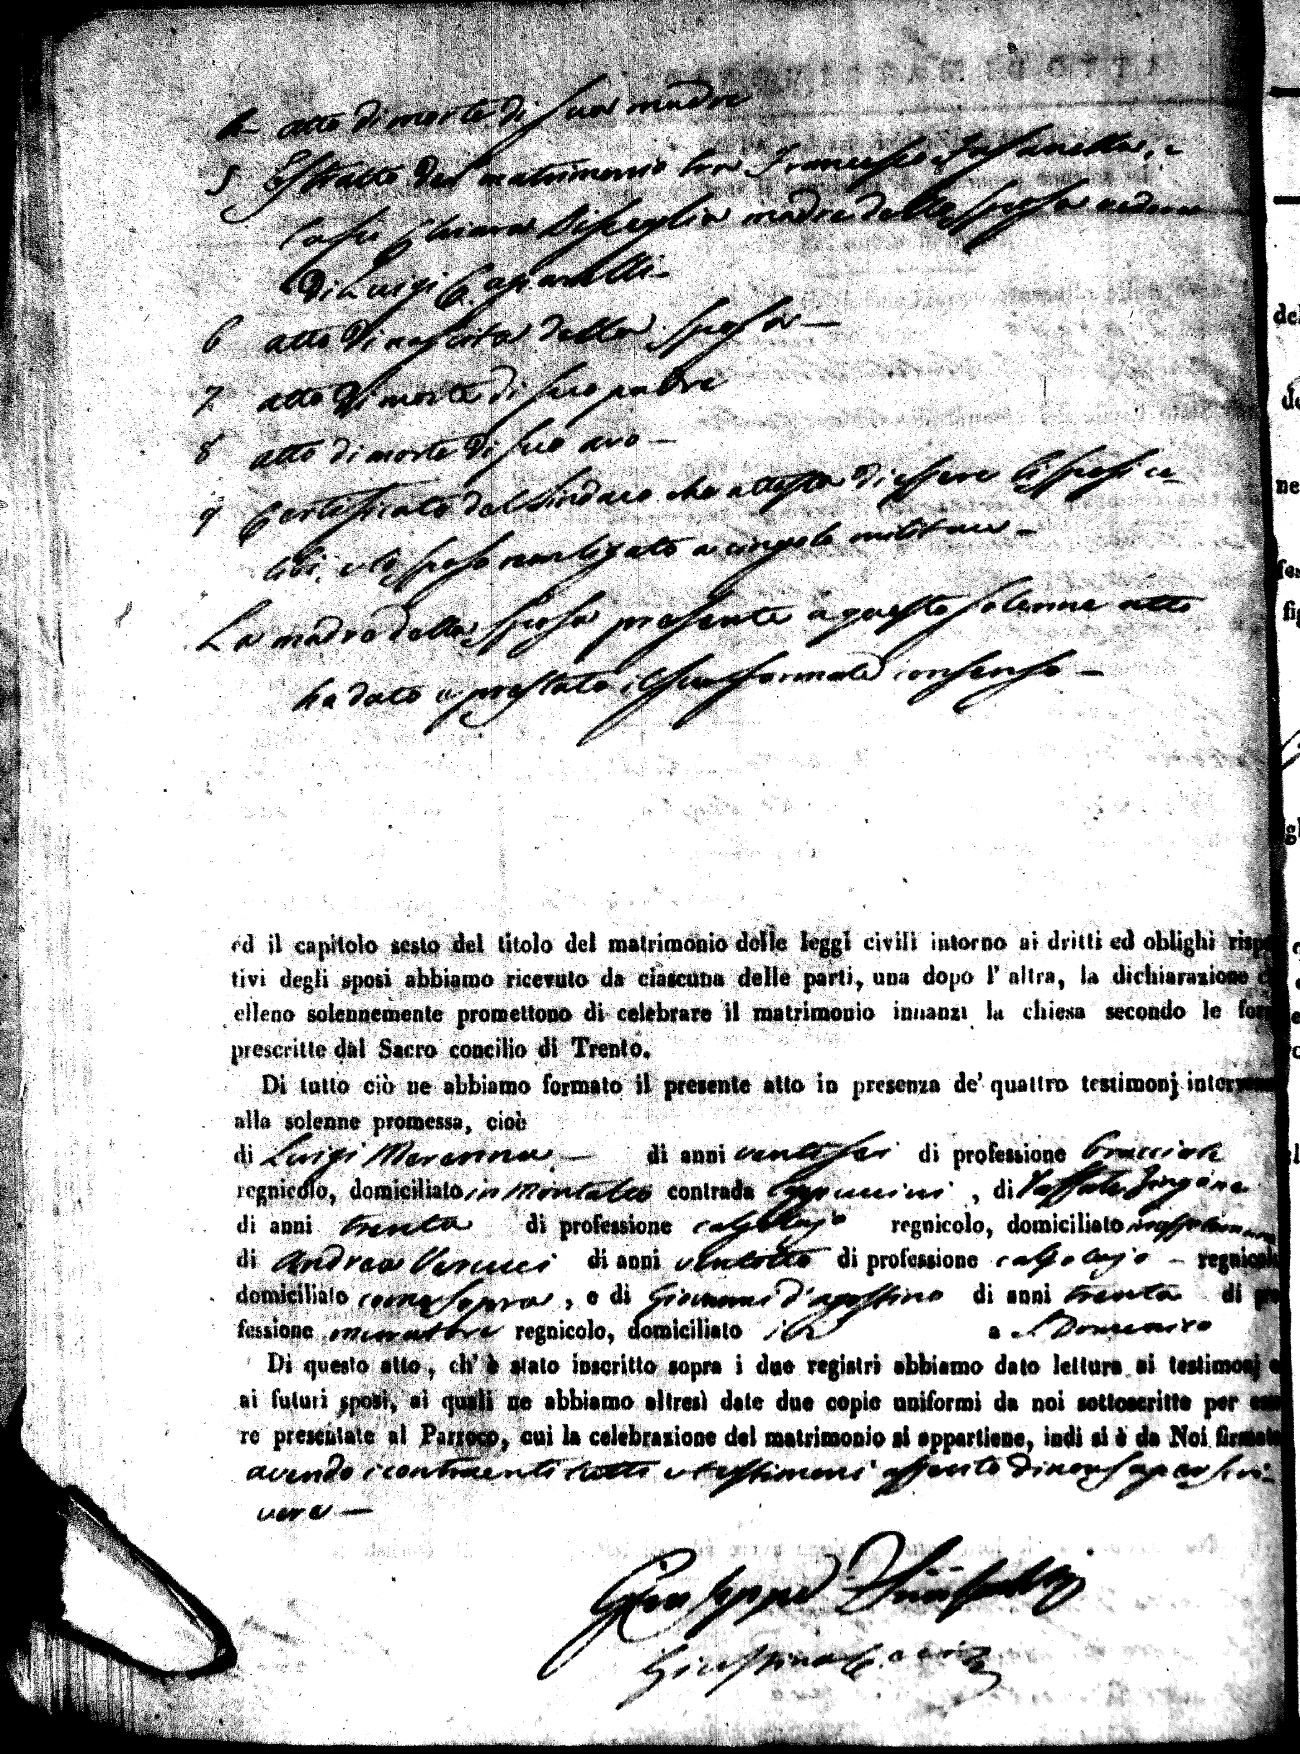 4 atto di morte di sua madre
5 Estratto del matrimonio tra Francesco Fasanella, e
Chiara Bisceglia madre della sposa vedova
di Luigi Caparelli
6 atto di nascita della sposa —
7 atto di morte di suo padre
8 atto di morte di suo avo —
9 Certificato del Sindaco che attesta di essere li sposi ce-
libi, e lo sposo non ligato a cingolo militare —
La madre della sposa presente a questo solenne atto
ha dato e prestato il suo formale consenso —
ed il capitolo sesto del titolo del matrimonio delle leggi civili intorno ai dritti ed oblighi rispe
tivi degli sposi abbiamo ricevuto da ciascuna delle parti, una dopo l' altra, la dichiarazione
elleno solennemente promettono di celebrare il matrimonio innanzi la chiesa secondo le for
prescritte dal Sacro concilio di Trento.
Di tutto ciò ne abbiamo formato il presente atto in presenza de' quattro testimonj interven
alla solenne promessa, cioè
di Luigi Maranna — di anni ventisei di professione bracciale
regnicolo, domiciliato in Montalto contrada Cappuccini , di
di anni trenta di professione calzolajo regnicolo, domiciliato
di Andrea Verucci di anni ventotto di professione calzolajo — regnicolo
domiciliato come sopra , e di Giovanni d'agostino di anni trenta di pro
fessione muratore regnicolo, domiciliato ivi a S. Domenico
Di questo atto, ch' è stato inscritto sopra i due registri abbiamo dato lettura ai testimonj e
ai futuri sposi, ai quali ne abbiamo altresì date due copie uniformi da noi sottoscritte per esse
re presentate al Parroco, cui la celebrazione del matrimonio si appartiene, indi si è da Noi firmato
avendo i contraenti tutti e testimoni asserito di non saper scri-
vere —
Giuseppe